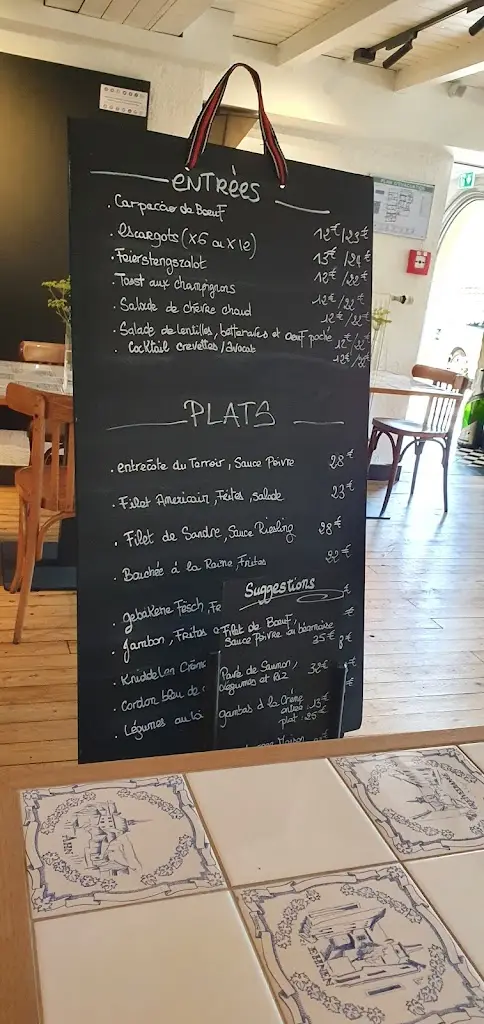 ENTRÉES
. Carpaccio de Boeuf 12€/23€
. escargots (x6 ou x12) 13€/24€
. Feierstengszalot 12€/22€
. Toast aux champignons 12€/22€
. Salade de chèvre chaud 12€/22€
. Salade de lentilles, betteraves et oeuf poché 12€/22€
. Cocktail crevettes/avocats 12€/22€
PLATS
. entrecôte du Terroir, Sauce Poivre 28€
. Filet Americain, Frites, salade 23€
. Filet de Sandre, Sauce Riesling 28€
. Bouchée à la Reine, Frites 22€
. gebakene Fësch, Fr
. Jambon, Frites
. Kniddelen Crème
. Cordon bleu de
. Légumes au
Suggestions
Filet de Boeuf,
Sauce Poivre ou béarnaise 35€
Pavé de Saumon, 32€
légumes et Riz
gambas à la Crème
entrée : 15€
plat : 25€
Maison
EHNEN